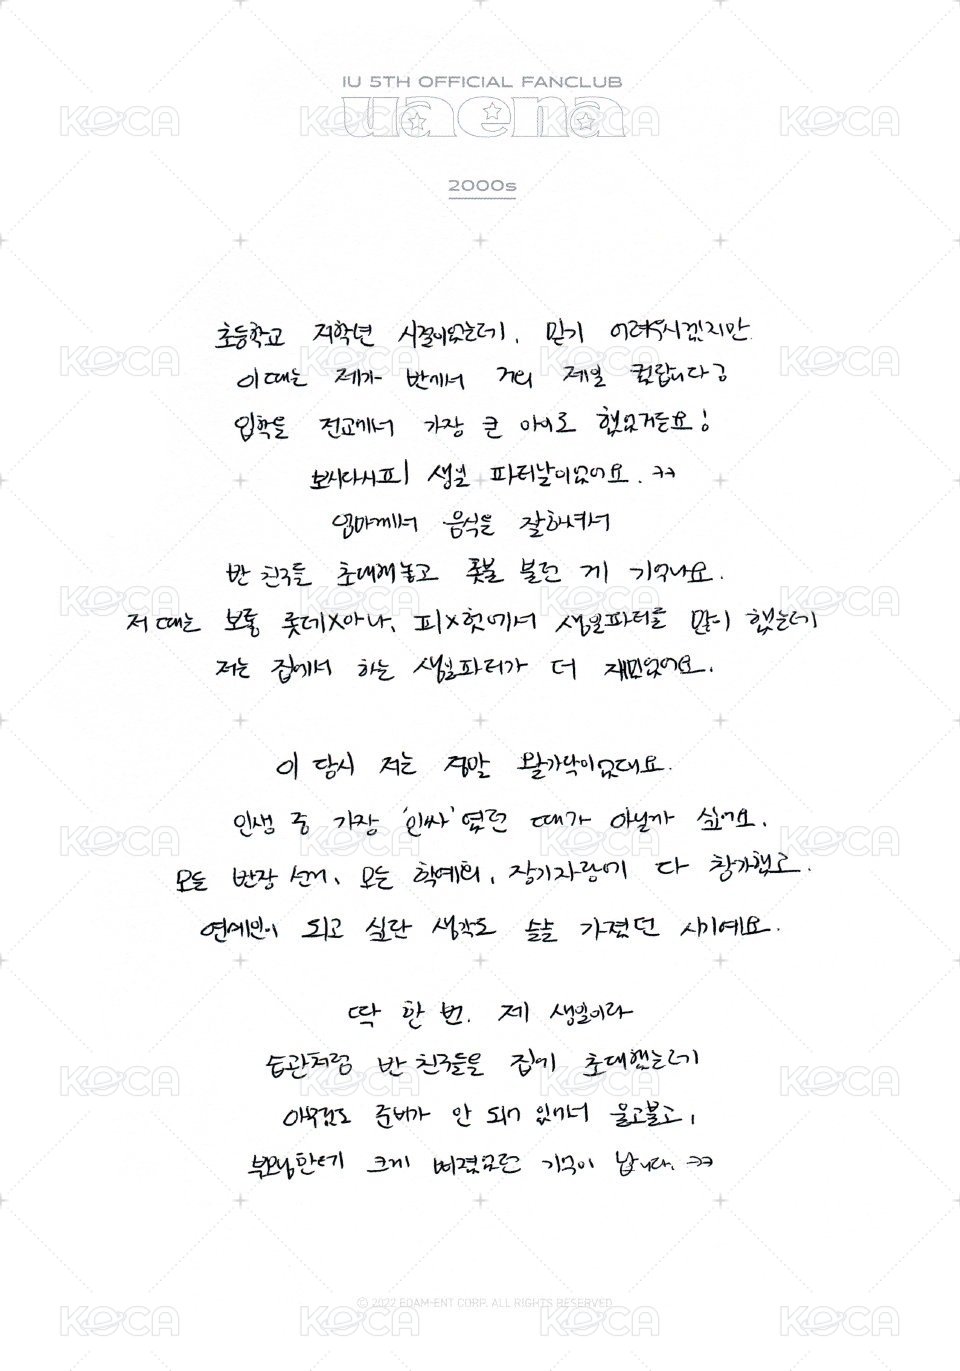 IU 5TH OFFICIAL FANCLUB
uaena
2000s
초등학교 저학년 시절이었는데, 믿기 어려우시겠지만
이때는 제가 반에서 거의 제일 컸답니다!
입학을 전교에서 가장 큰 아이로 했었거든요!
보시다시피 생일 파티날이었어요. ㅋㅋ
엄마께서 음식을 잘하셔서
반 친구들 초대해놓고 촛불 불던 게 기억나요.
저 때는 보통 롯데X아나, 피X헛에서 생일파티를 많이 했는데
저는 집에서 하는 생일파티가 더 재밌었어요.
이 당시 저는 정말 왈가닥이었대요.
인생 중 가장 '인싸'였던 때가 아닐까 싶어요.
모든 반장 선거, 모든 학예회, 장기자랑에 다 참가했고
연예인이 되고 싶단 생각도 슬슬 가졌던 시기예요.
딱 한 번, 제 생일이라
습관처럼 반 친구들을 집에 초대했는데
아무것도 준비가 안 되어 있어서 울고불고,
부모님한테 크게 삐졌었던 기억이 납니다. ㅋㅋ
© 2022 EDAM-ENT CORP. ALL RIGHTS RESERVED
KOCA